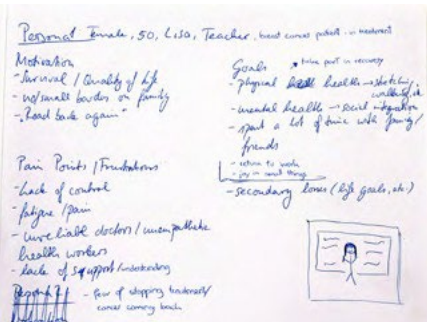 Persona1 Female, 50, Lisa, Teacher, breast cancer patient - in treatment
Motivation
- Survival / Quality of life
- no/small burden on family
- "Road back again"
Pain Points / Frustrations
- Lack of control
- fatigue / pain
- unreliable doctors / unempathetic
health workers
- lack of support / understanding
- fear of stopping treatment /
cancer coming back
Goals
take part in recovery
- physical health → stretching,
walking
- mental health → social integration
- spent a lot of time with family /
friends
- return to work
- joy in small things
- secondary losses (life goals, etc.)